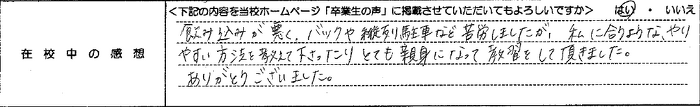 <下記の内容を当校ホームページ「卒業生の声」に掲載させていただいてもよろしいですか>　はい・いいえ
在校中の感想
飲み込みが悪く、バックや縦列駐車など苦労しましたが、私に合うような、やり
やすい方法を教えて下さったりとても親身になって教習をして頂きました。
ありがとうございました。